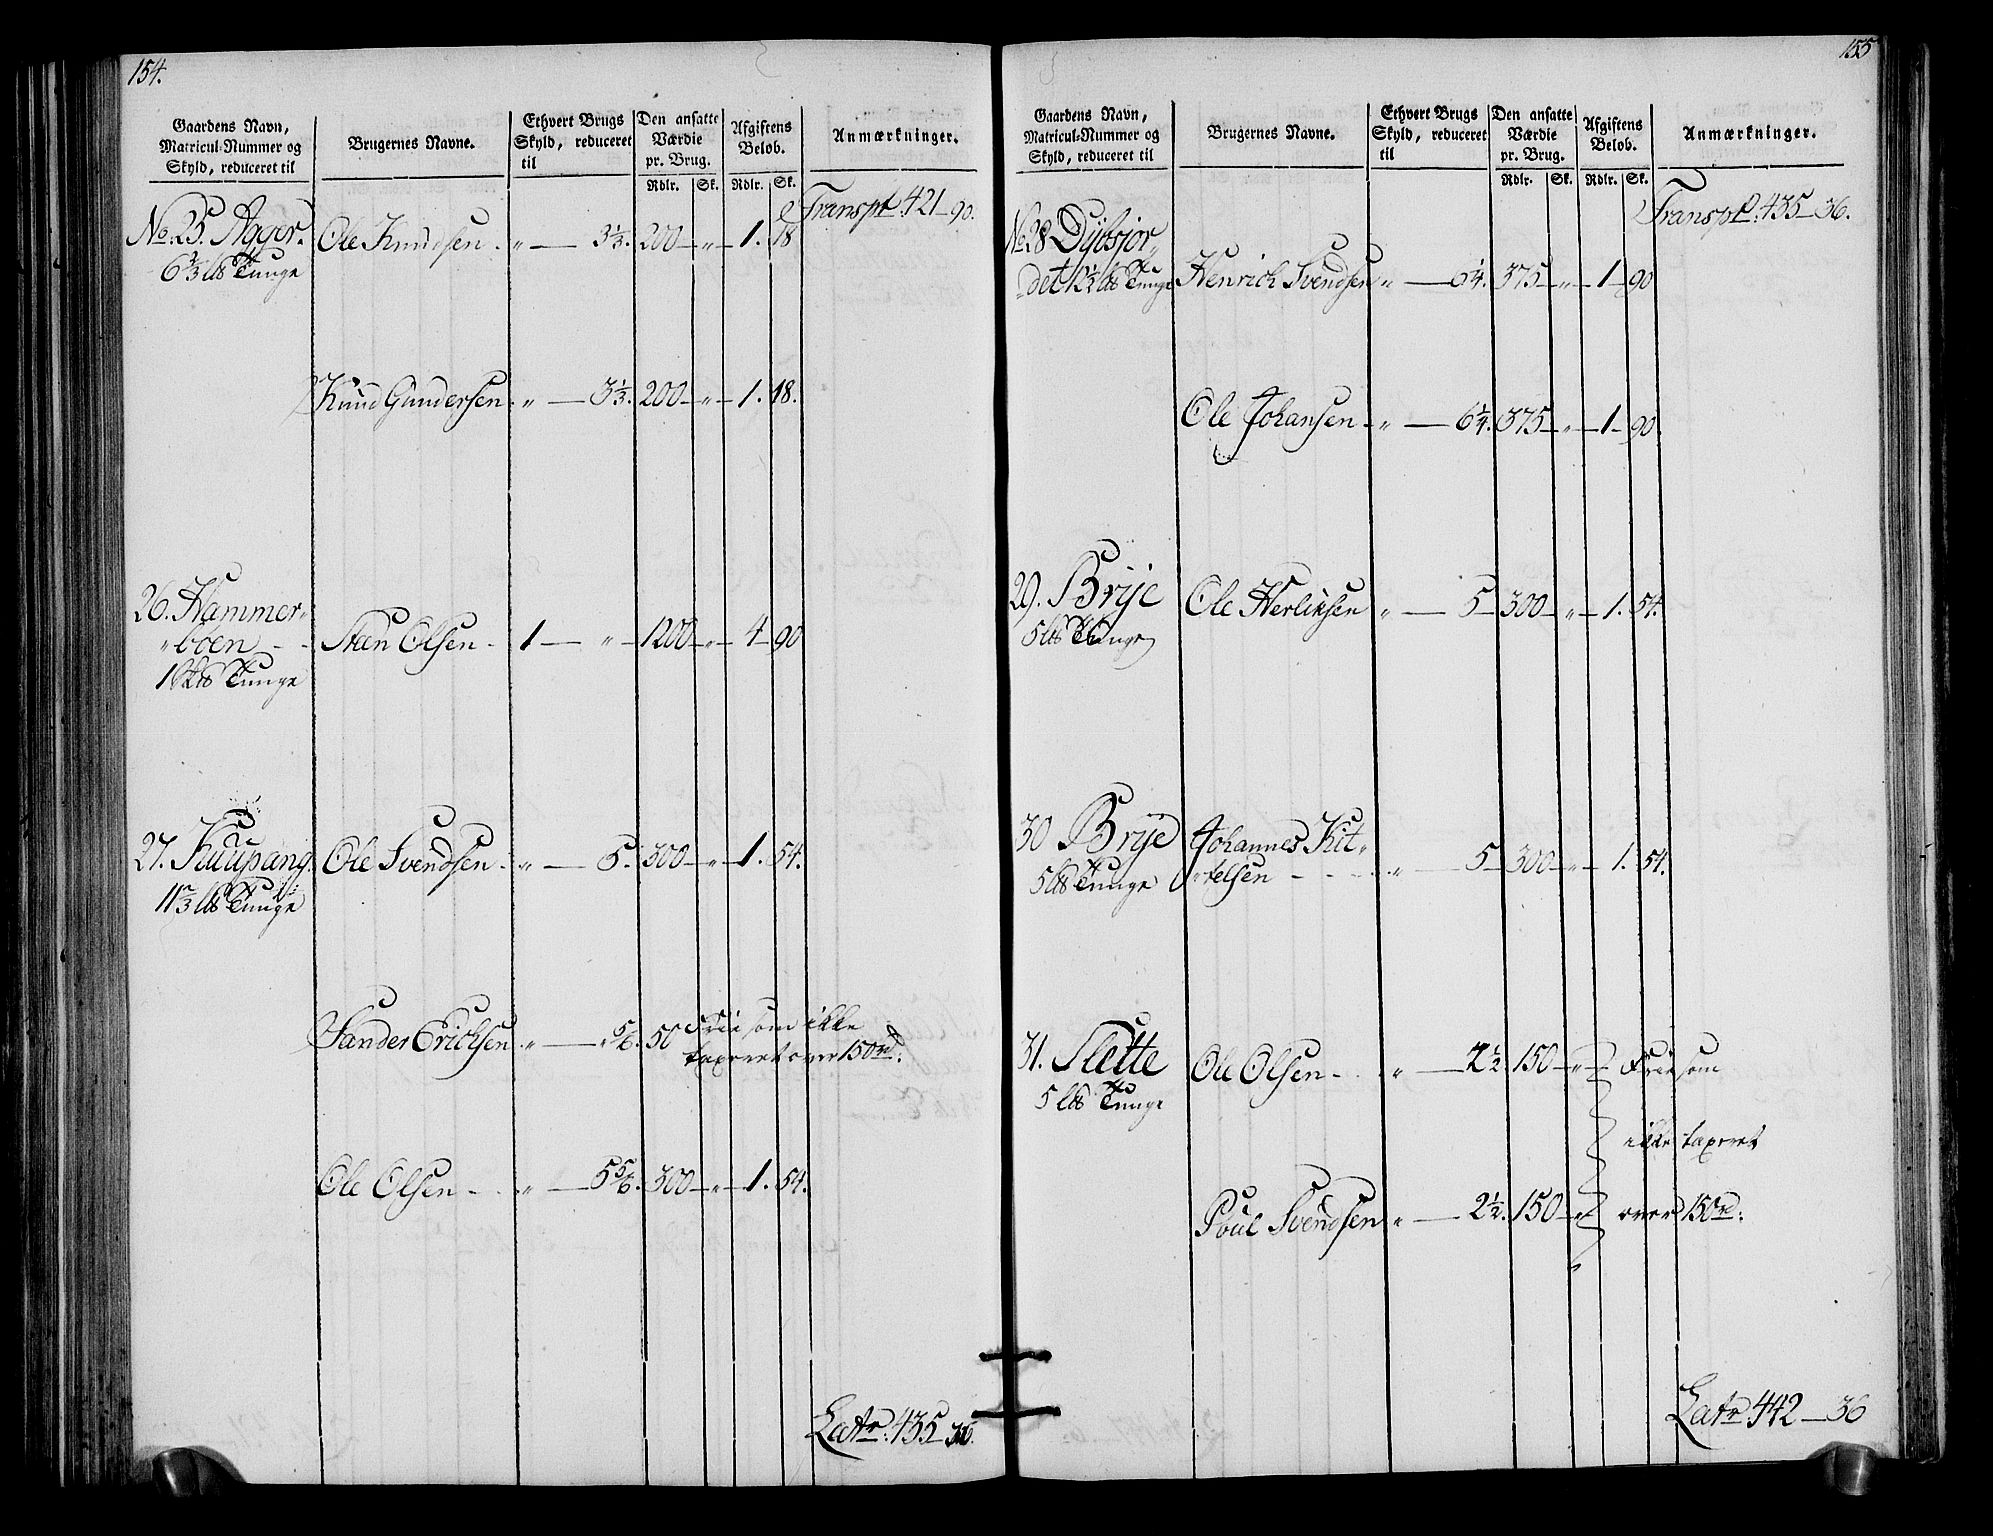 154.
Gaardens Navn, Matricul-Nummer og Skyld, reduceret til
Brugernes Navne.
Ethvert Brugs Skyld, reduceret til
Den ansatte Værdie pr. Brug.
Afgiftens Beløb.
Anmærkninger.
Rdlr. Sk. Rdlr. Sk.
Transpt. 421 – 90.
No. 25. Ager. Ole Knudsen. „ — 3⅓. 200 – „ – 1. 18
6⅔ lb Tunge
Knud Gundersen. „ — 3⅓. 200 – „ – 1. 18.
26. Hammer-
„boen - - Steen Olsen - 1 — „ – 1200 – „ – 4 – 90
1 Tunge
27. Kuupang. Ole Svendsen - „ — 5. 300 – „ – 1. 54.
11⅔ lb Tunge
Sander Ericksen. „ — „ ⅚. 50 Frie som ikke
taxeret over 150 rd.
Ole Olsen - - „ — 5⅚. 300 – „ – 1. 54.
Latr. 435 – 36.
155
Gaardens Navn, Matricul-Nummer og Skyld, reduceret til
Brugernes Navne.
Ethvert Brugs Skyld, reduceret til
Den ansatte Værdie pr. Brug.
Afgiftens Beløb.
Anmærkninger.
Rdlr. Sk. Rdlr. Sk.
Transpt. 435 – 36.
No. 28 Dybsjor-
„det 12½ lb Tunge Henrich Svendsen „ — 6¼. 375 – „ – 1 – 90
Ole Johansen - „ — 6¼. 375 – „ – 1 – 90.
29. Brije Ole Herliksen „ — 5 – 300 – „ – 1. 54.
5 lb Tunge
30 Brije Johannes Kit-
5 lb Tunge „telsen - - - - „ — 5 – 300 – „ – 1. 54.
31. Slette Ole Olsen - - „ — 2½. 150 – „ – Frie som
5 lb Tunge
ikke taxeret
Poul Svendsen „ — 2½. 150 – „ over 150 rd.
Latr. 442 – 36